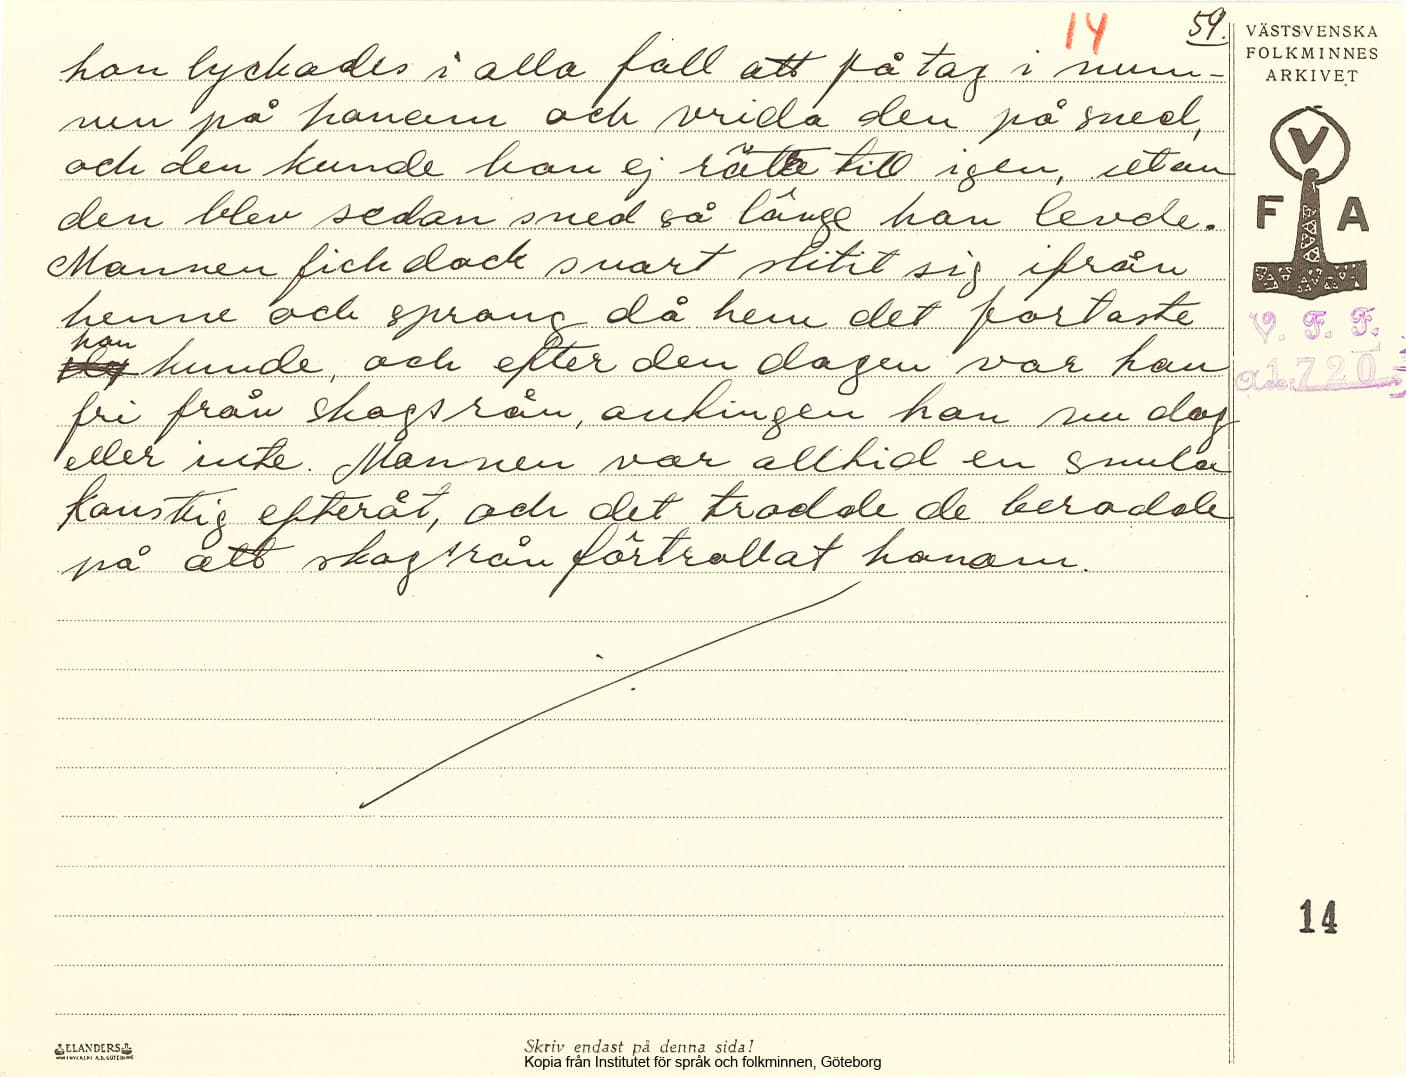 14
59.
VÄSTSVENSKA
FOLKMINNES
ARKIVET
V
F A
V. F. F.
1720
hon lyckades i alla fall att få tag i mun-
nen på honom och vrida den på sned,
och den kunde han ej rätta till igen, utan
den blev sedan sned så länge han levde.
Mannen fick dock snart slitit sig ifrån
henne och sprang då hem det fortaste
han
kunde, och efter den dagen var han
fri från skogsrån, antingen hon nu dog
eller inte. Mannen var alltid en smula
konstig efteråt, och det trodde de berodde
på att skogsrån förtrollat honom.
14
ELANDERS
Skriv endast på denna sida!
Kopia från Institutet för språk och folkminnen, Göteborg